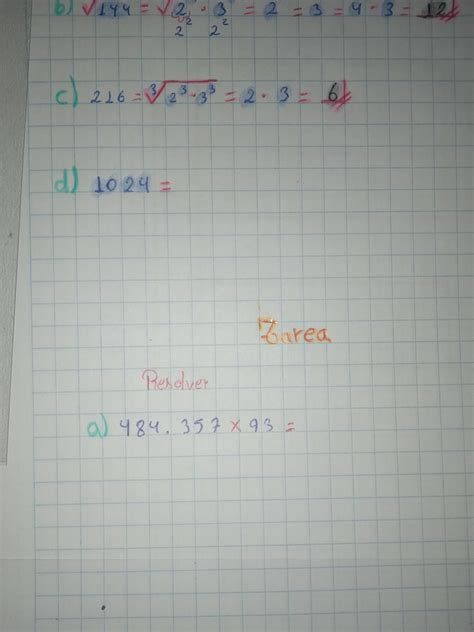 b) √144 = √2² · 3² = 2 = 3 = 4 · 3 = 12
2² 2²
c) 216 = ³√2³ · 3³ = 2 · 3 = 6
d) 1024 =
Tarea
Resolver
a) 484.357 x 93 =